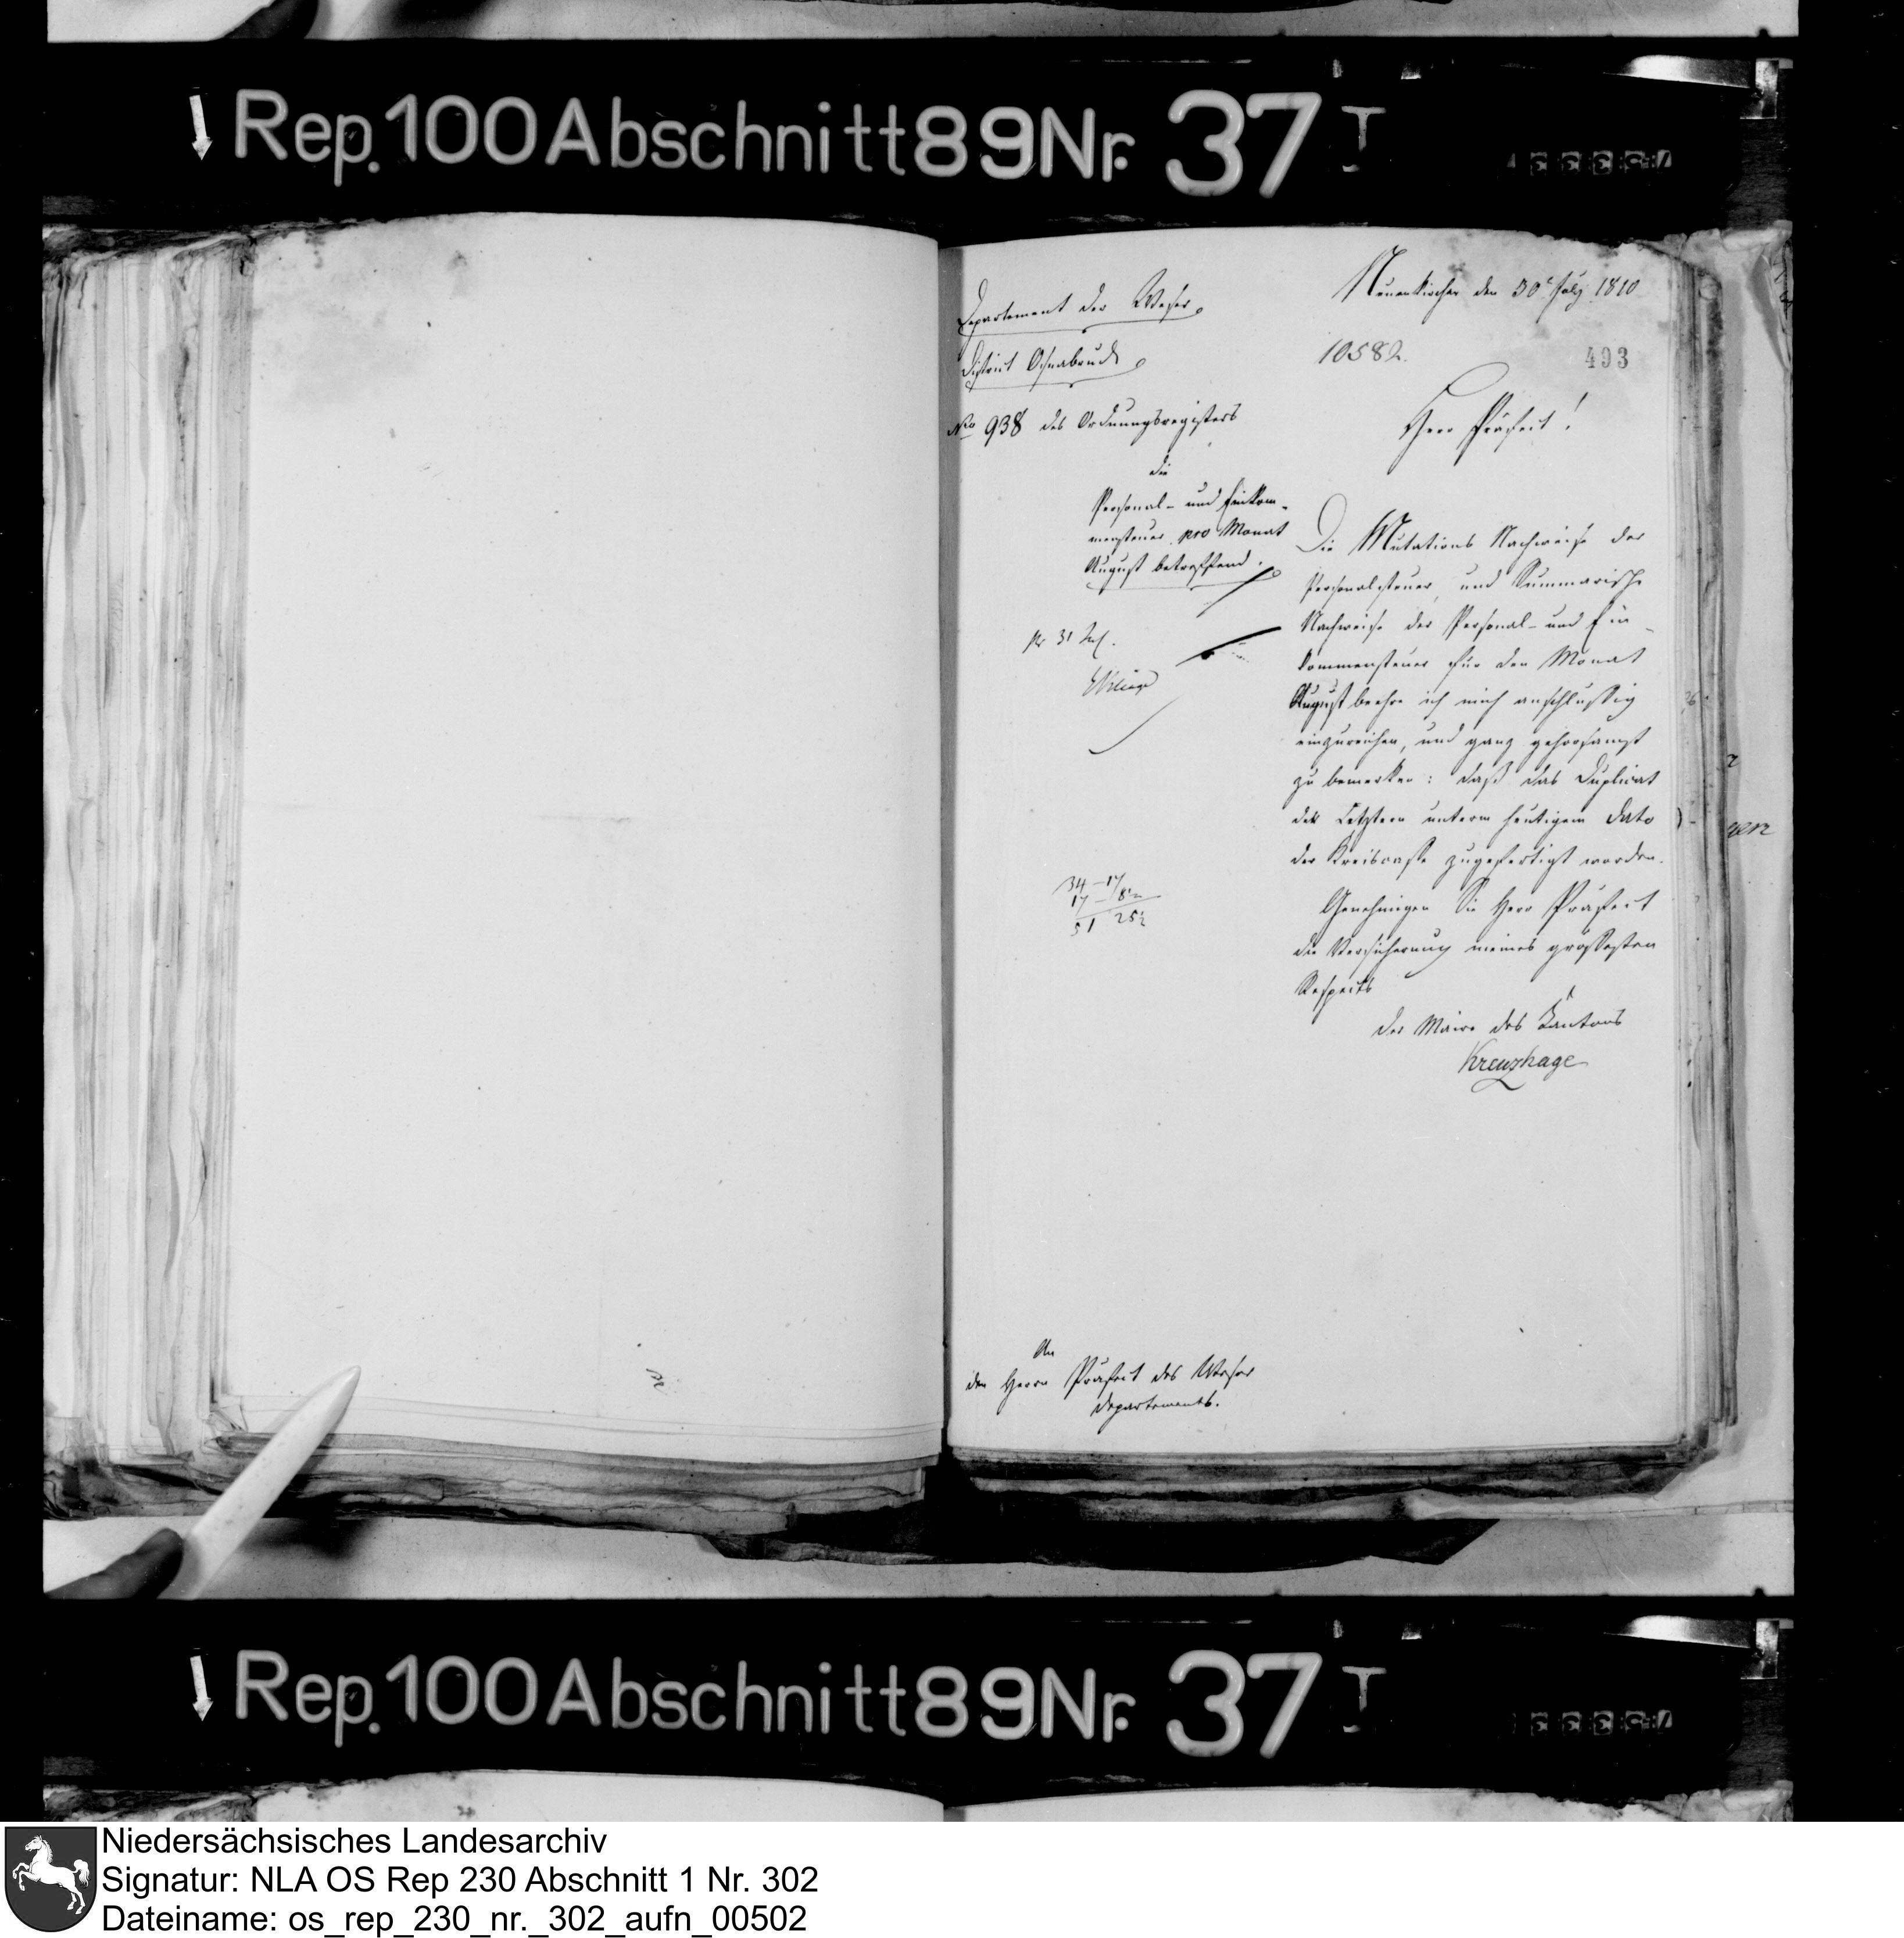 Rep. 100 Abschnitt 89 Nr. 37 I
Departement der Weser
District Osnabruck
No 938 des Ordnungsregisters
die
Personal- und Einkom-
mensteuer pro Monat
August betreffend.
pr 31 Jul.
34 - 17
17 - 8½
51 25½
An
den Herrn Präfect des Weser
departements.
Neuenkirchen den 30t July 1810
10582.
493
Herr Präfect!
Die Mutations Nachweise der
Personalsteuer, und Summarische
Nachweise der Personal- und Ein-
kommensteuer für den Monat
August beehre ich mich anschlussig
einzureichen, und ganz gehorsamst
zu bemerken: daß das Duplicat
der Letztern unterm heutigem dato
der Kreiscasse zugefertigt worden.
Genehmigen Sie Herr Präfect
die Versicherung meines größesten
Respects
Der Maire des Kantons
Kreuzhage
Rep. 100 Abschnitt 89 Nr. 37 I
Niedersächsisches Landesarchiv
Signatur: NLA OS Rep 230 Abschnitt 1 Nr. 302
Dateiname: os_rep_230_nr._302_aufn_00502